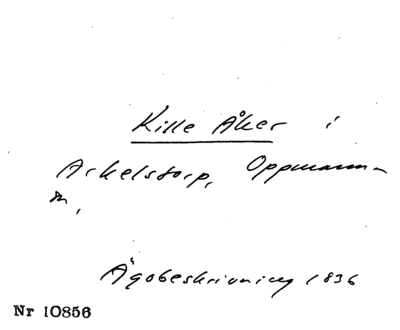 Kille Åker i
Arkelstorp, Oppmann-
a,
Ägobeskrivning 1836
Nr 10856